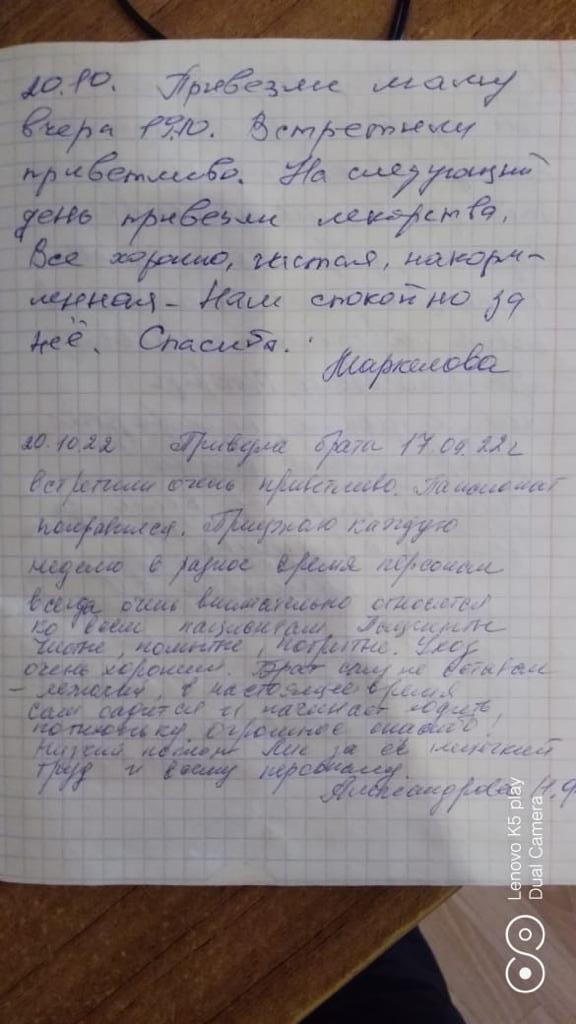 20.10. Привезли маму
вчера 19.10. Встретили
приветливо. На следующий
день привезли лекарства.
Все хорошо, чистая, накорм-
ленная - Нам спокойно за
неё. Спасибо.
Маркелова
20.10.22 Привезла брата 17.09.22г
встретили очень приветливо. Пансионат
понравился. Приезжаю каждую
неделю в разное время персонал
всегда очень внимательно относятся
ко всем пациентам. Пациенты
чистые, помытые, побритые. Уход
очень хороший. Брат был не вставал
- лежачий, в настоящее время
сам садится и начинает ходить
потихоньку. Огромное спасибо!
Низкий поклон за её
труд и всему персоналу.
Александрова Н.Ф
Lenovo K5 play
Dual Camera